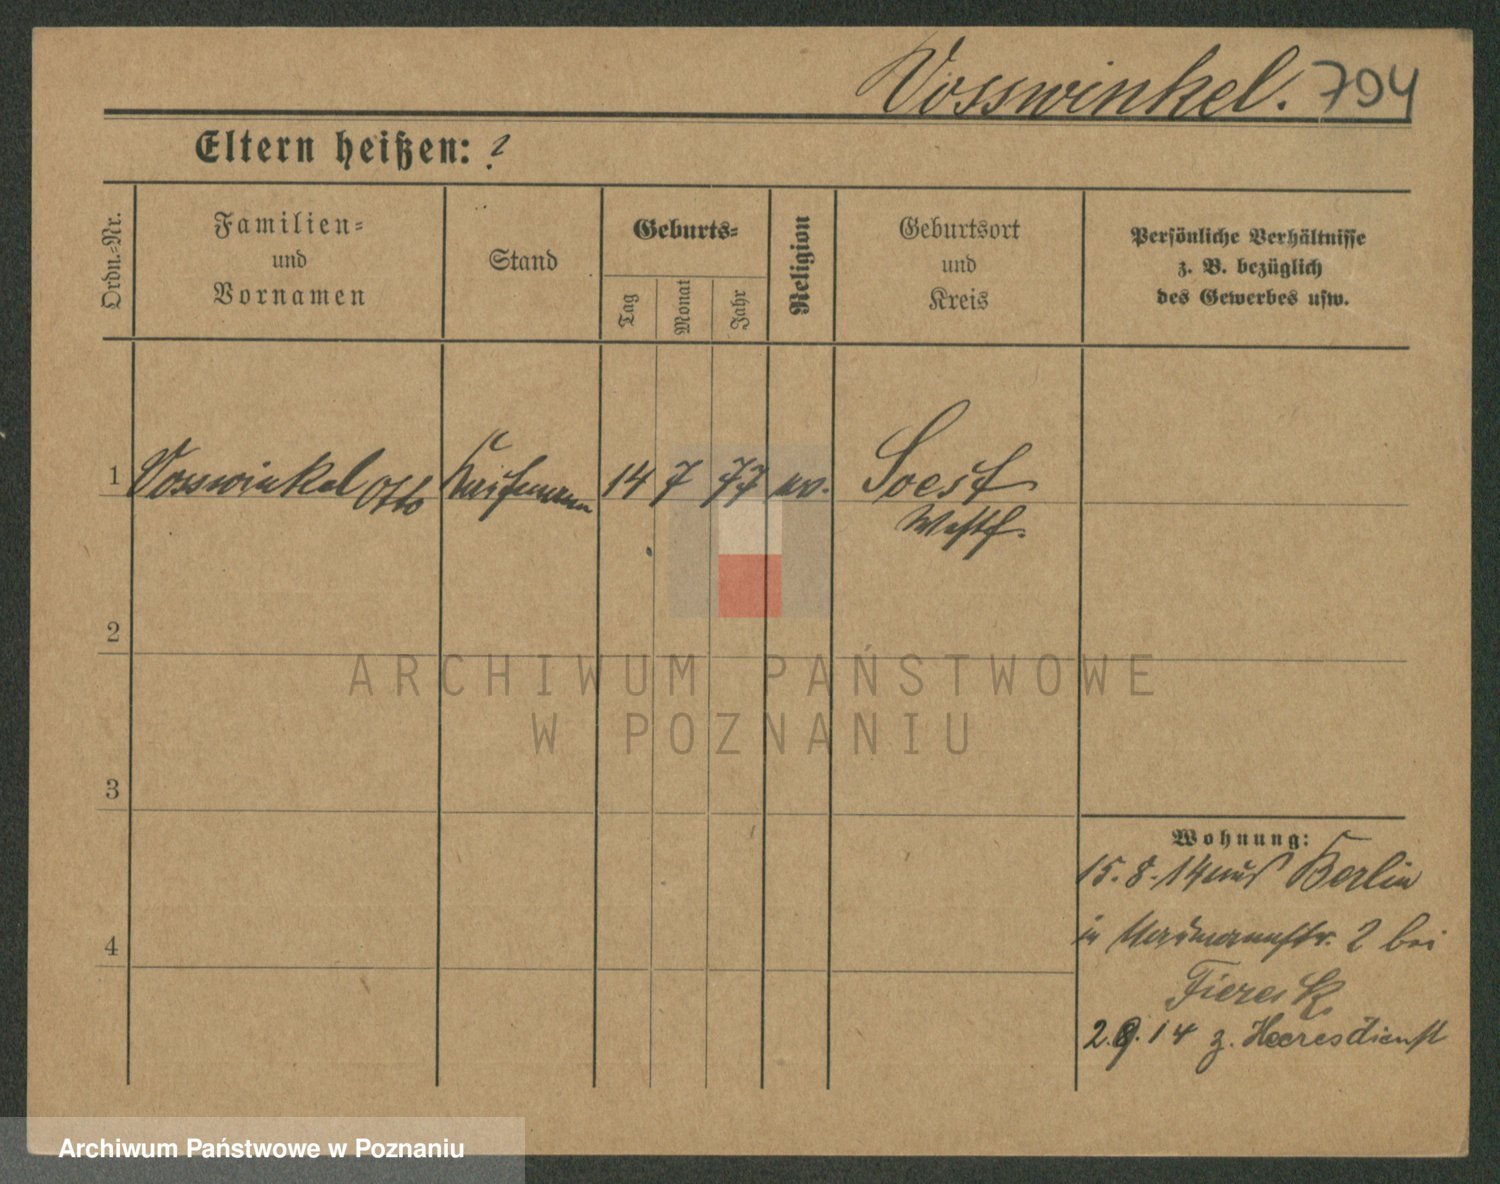 Vosswinkel. 794
Eltern heißen: ?
Ordn.-Nr.
Familien-
und
Vornamen
Stand
Geburts-
Tag
Monat
Jahr
Religion
Geburtsort
und
Kreis
Persönliche Verhältnisse
z. B. bezüglich
des Gewerbes usw.
1 Vosswinkel Otto Kaufmann 14 7 77 ev. Soest
Westf.
2
ARCHIWUM PAŃSTWOWE
W POZNANIU
3
Wohnung:
15.8.14 aus Berlin
4
in 2 bei
2.9.14 z. Heeresdienst
Archiwum Państwowe w Poznaniu